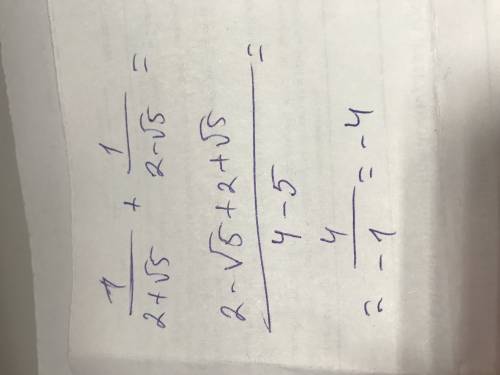 1/(2+√5) + 1/(2-√5) =
(2-√5+2+√5)/(4-5) =
= 4/(-1) = -4